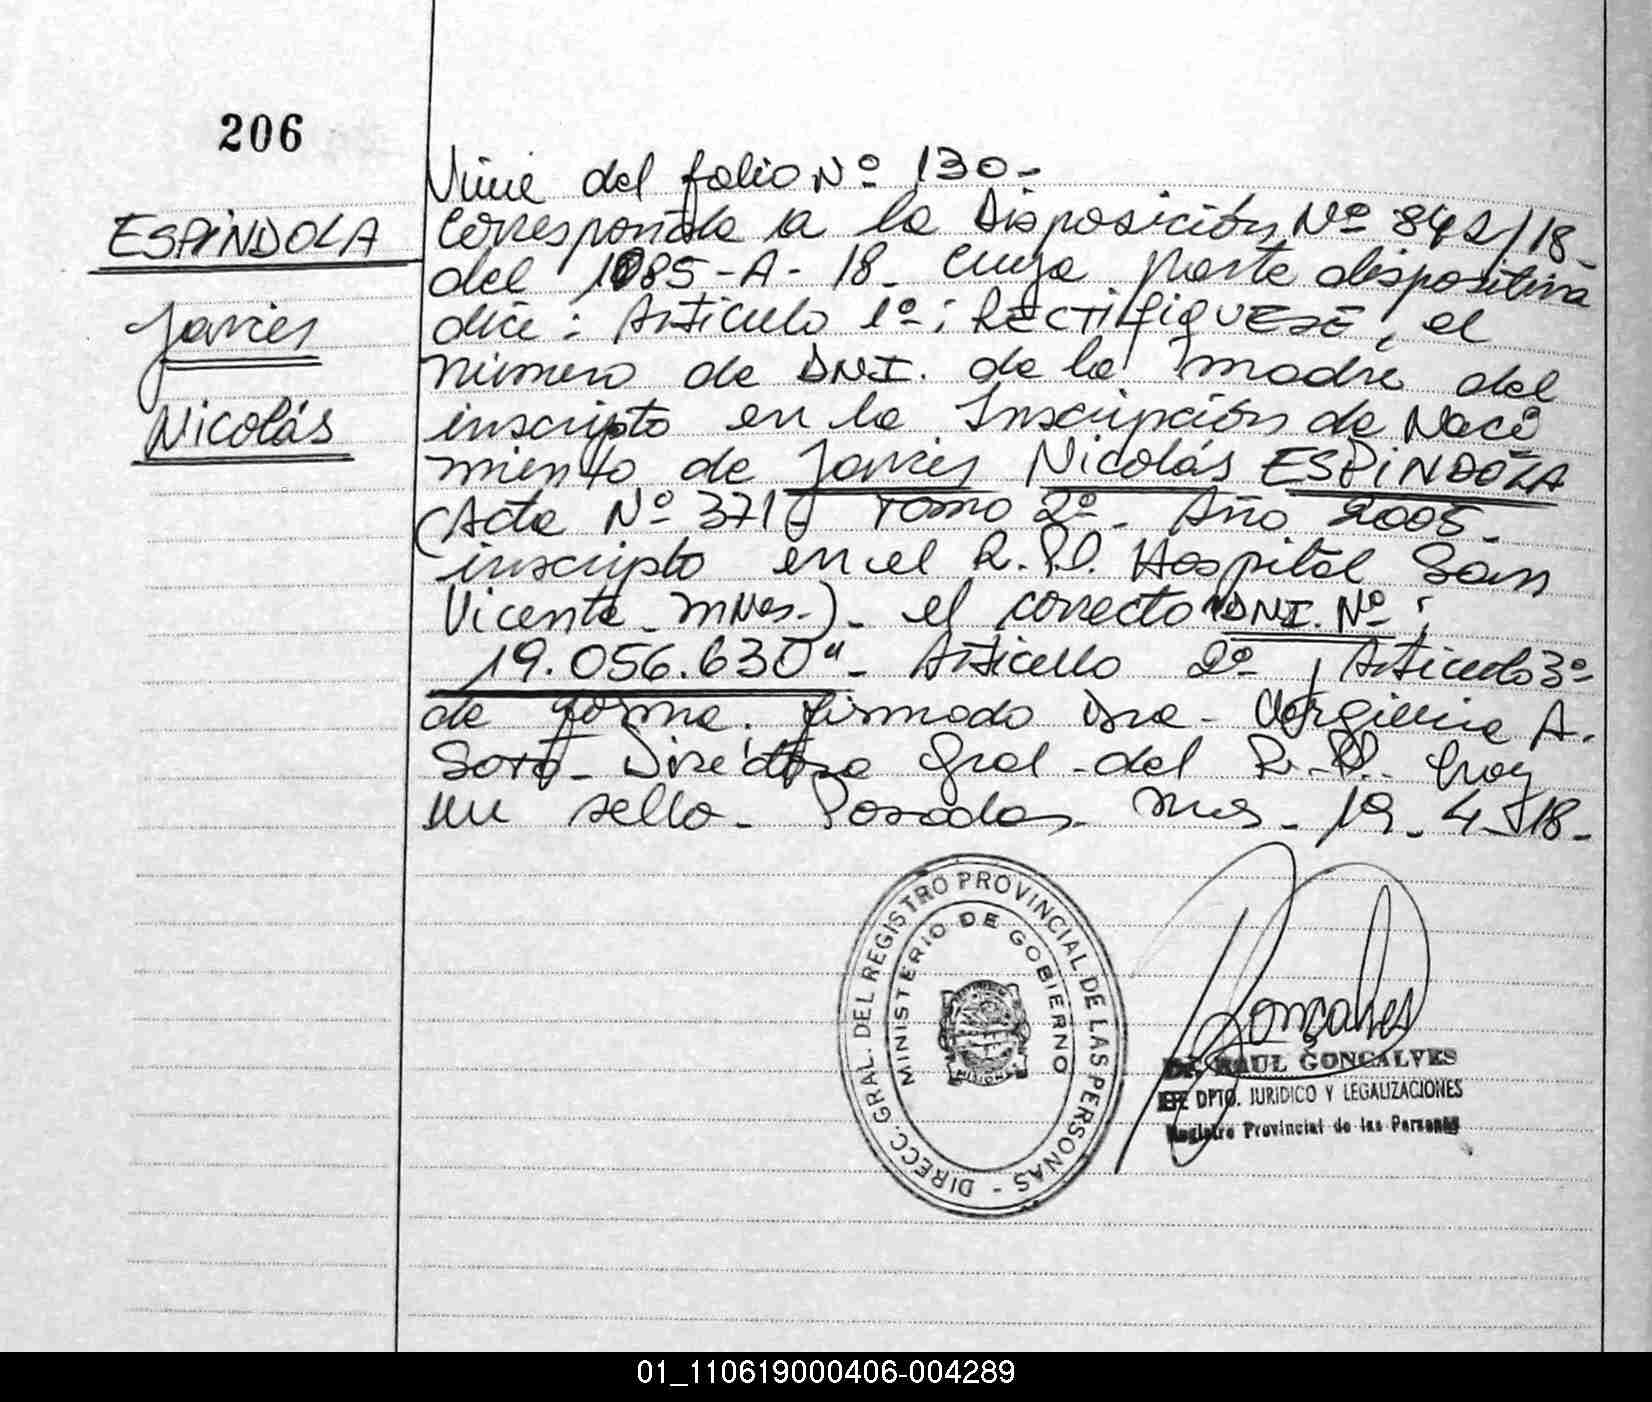 206
ESPINDOLA
Javier
Nicolás
Viene del folio Nº 130-
Corresponde a la Disposición Nº 842/18-
del 1085-A-18- cuya parte dispositiva
dice: Artículo 1º: RECTIFIQUESE, el
número de DNI. de la madre del
inscripto en la Inscripción de Naci
miento de Javier Nicolás ESPINDOLA
(Acta Nº 371- Tomo 2º- Año 2005-
inscripto en el R.P.P. Hospital San
Vicente- Mnes.)- el correcto "DNI. Nº:
19.056.630"- Artículo 2º y Artículo 3º-
de forma. firmado Dra- A.
Soto- Directora Gral-del R.P.P. hay
un sello- Posadas- Mnes- 19-4-18-
DIRECC. GRAL. DEL REGISTRO PROVINCIAL DE LAS PERSONAS -
MINISTERIO DE GOBIERNO
MISIONES
Goncalves
Dr. RAUL GONCALVES
JEFE DPTO. JURIDICO Y LEGALIZACIONES
Registro Provincial de las Personas
01_110619000406-004289